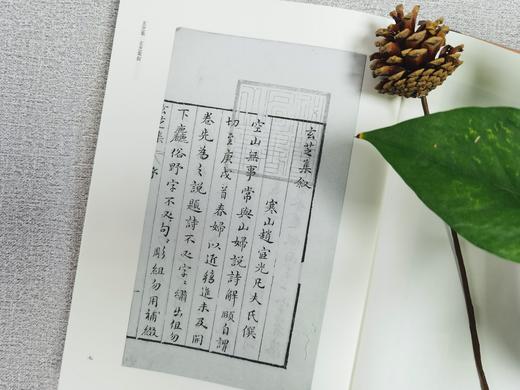 玄芝集叙
寒山趙宧光凡夫氏僎
空山無事常與山婦說詩解頤自謂
切至庚戌首春婦以近稿進未及開
卷先為之說題詩不必字〻繡出但勿
下麤俗野字不必句〻彫組勿用補綴
玄芝集
九